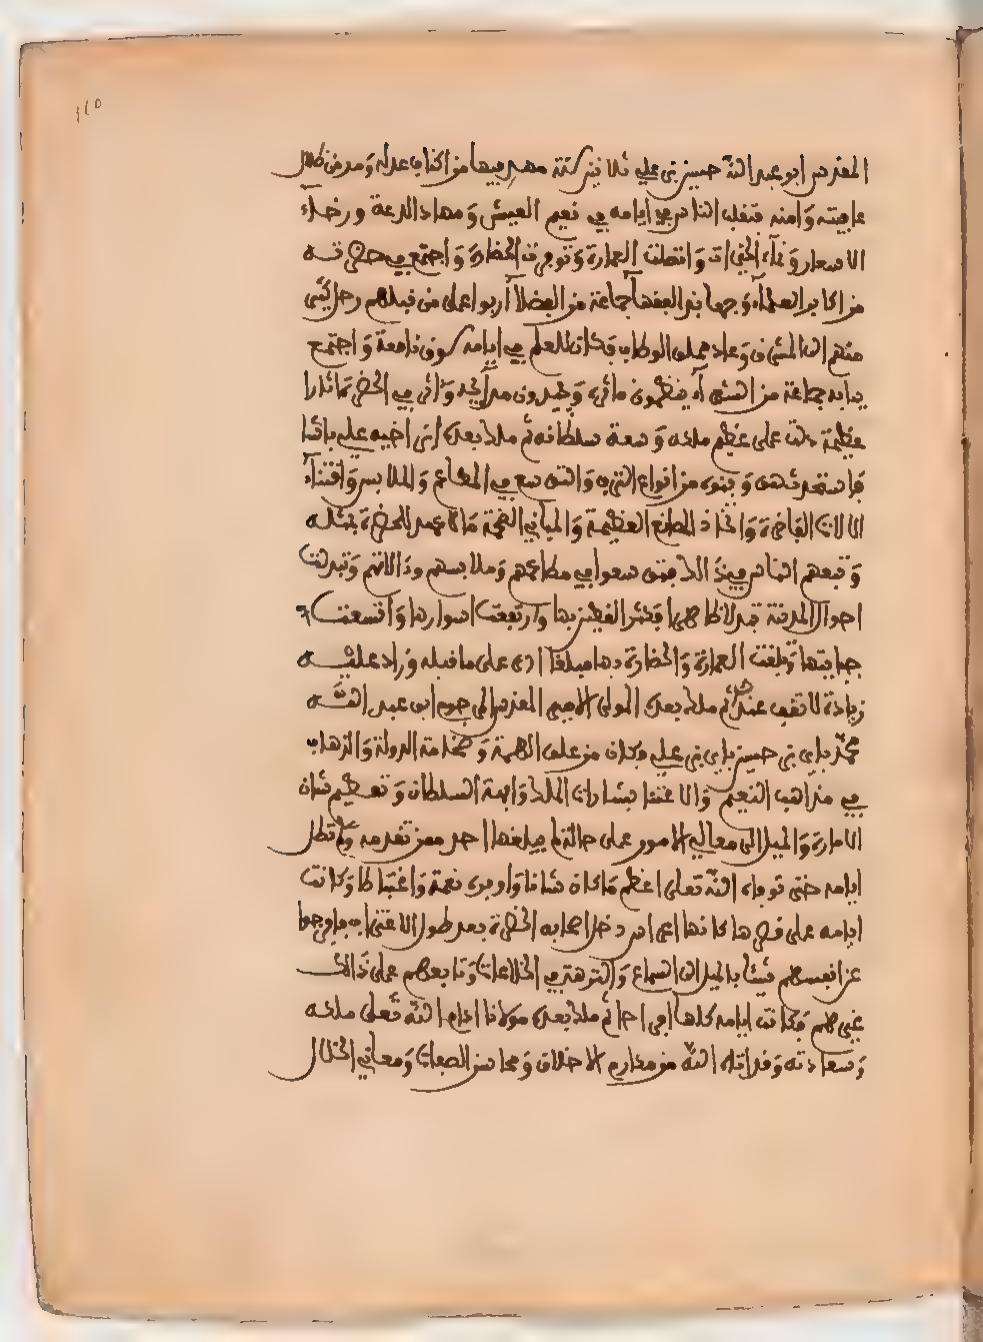 ١١٥
المقدس ابو عبد الله حسين بن علي ثلاثين سنة مهد فيها من اكناف عدله ومد من ظلال
عافيته وامنه فتقلب الناس في ايامه في نعيم العيش ومهاد الدعة ورخاء
الاسعار ونماء الخيرات واتصلت العمارة وتوفرت الحضارة واجتمع في حضرته
من اكابر العلماء وجهابذ الفقهاء جماعة من الفضلاء اربوا على من قبلهم ورحل كثير
منهم الى المشرق وعاد مملو الوطاب فكان للعلم في ايامه سوق نافعة واجتمع
ببابه جماعة من الشعراء ينظمون ماثره ويخلدون مدايحه واثر في الحضرة ماثارا
عظيمة دلت على عظم ملكه وسعة سلطانه ثم ملك بعده ابن اخيه علي باشا
فاستحدث هو وبنوه من انواع الترف والتوسع في المطاعم والملابس واقتناء
الالات الفاخرة واتخاذ المصانع العظيمة والمباني الضخمة ما لا عهد للحضرة بمثله
وتبعهم الناس في ذلك فتوسعوا في مطاعمهم وملابسهم وذالاتهم وتبدلت
احوال المدينة تبدلا ظاهرا فكثر القطين بها وارتفعت اسوارها واتسعت
جبايتها وبلغت العمارة والحضارة بها مبلغا اربى على ما قبله وزاد عليه
زيادة لا تقف عند حد ثم ملك بعده المولى الامير المقدس المرحوم ابو عبد الله
محمد باي بن حسين باي بن علي وكان من علو الهمة وضخامة الدولة والذهاب
في مذاهب النعيم والاعتنا بشارات الملك وابهة السلطان وتعظيم شان
الامارة والميل الى معالي الامور على حالة لم يبلغها احد ممن تقدمه ولم تطل
ايامه حتى توفاه الله تعالى اعظم ما كان شانا واوفره نعمة واغتباطا وكانت
ايامه على قصرها كانها اعراس دخل اصحابه الحضرة بعد طول الاغتراب فاروحوا
عن انفسهم شيئا بالميل الى السماع والتنزه في الخلاعات وتابعهم على ذالك
غيرهم فكانت ايامه كلها افراحا ثم ملك بعده مولانا ادام الله تعلى ملكه
وسعادته وقد اتاه الله من مكارم الاخلاق ومحاسن الصفات ومعالي الخلال